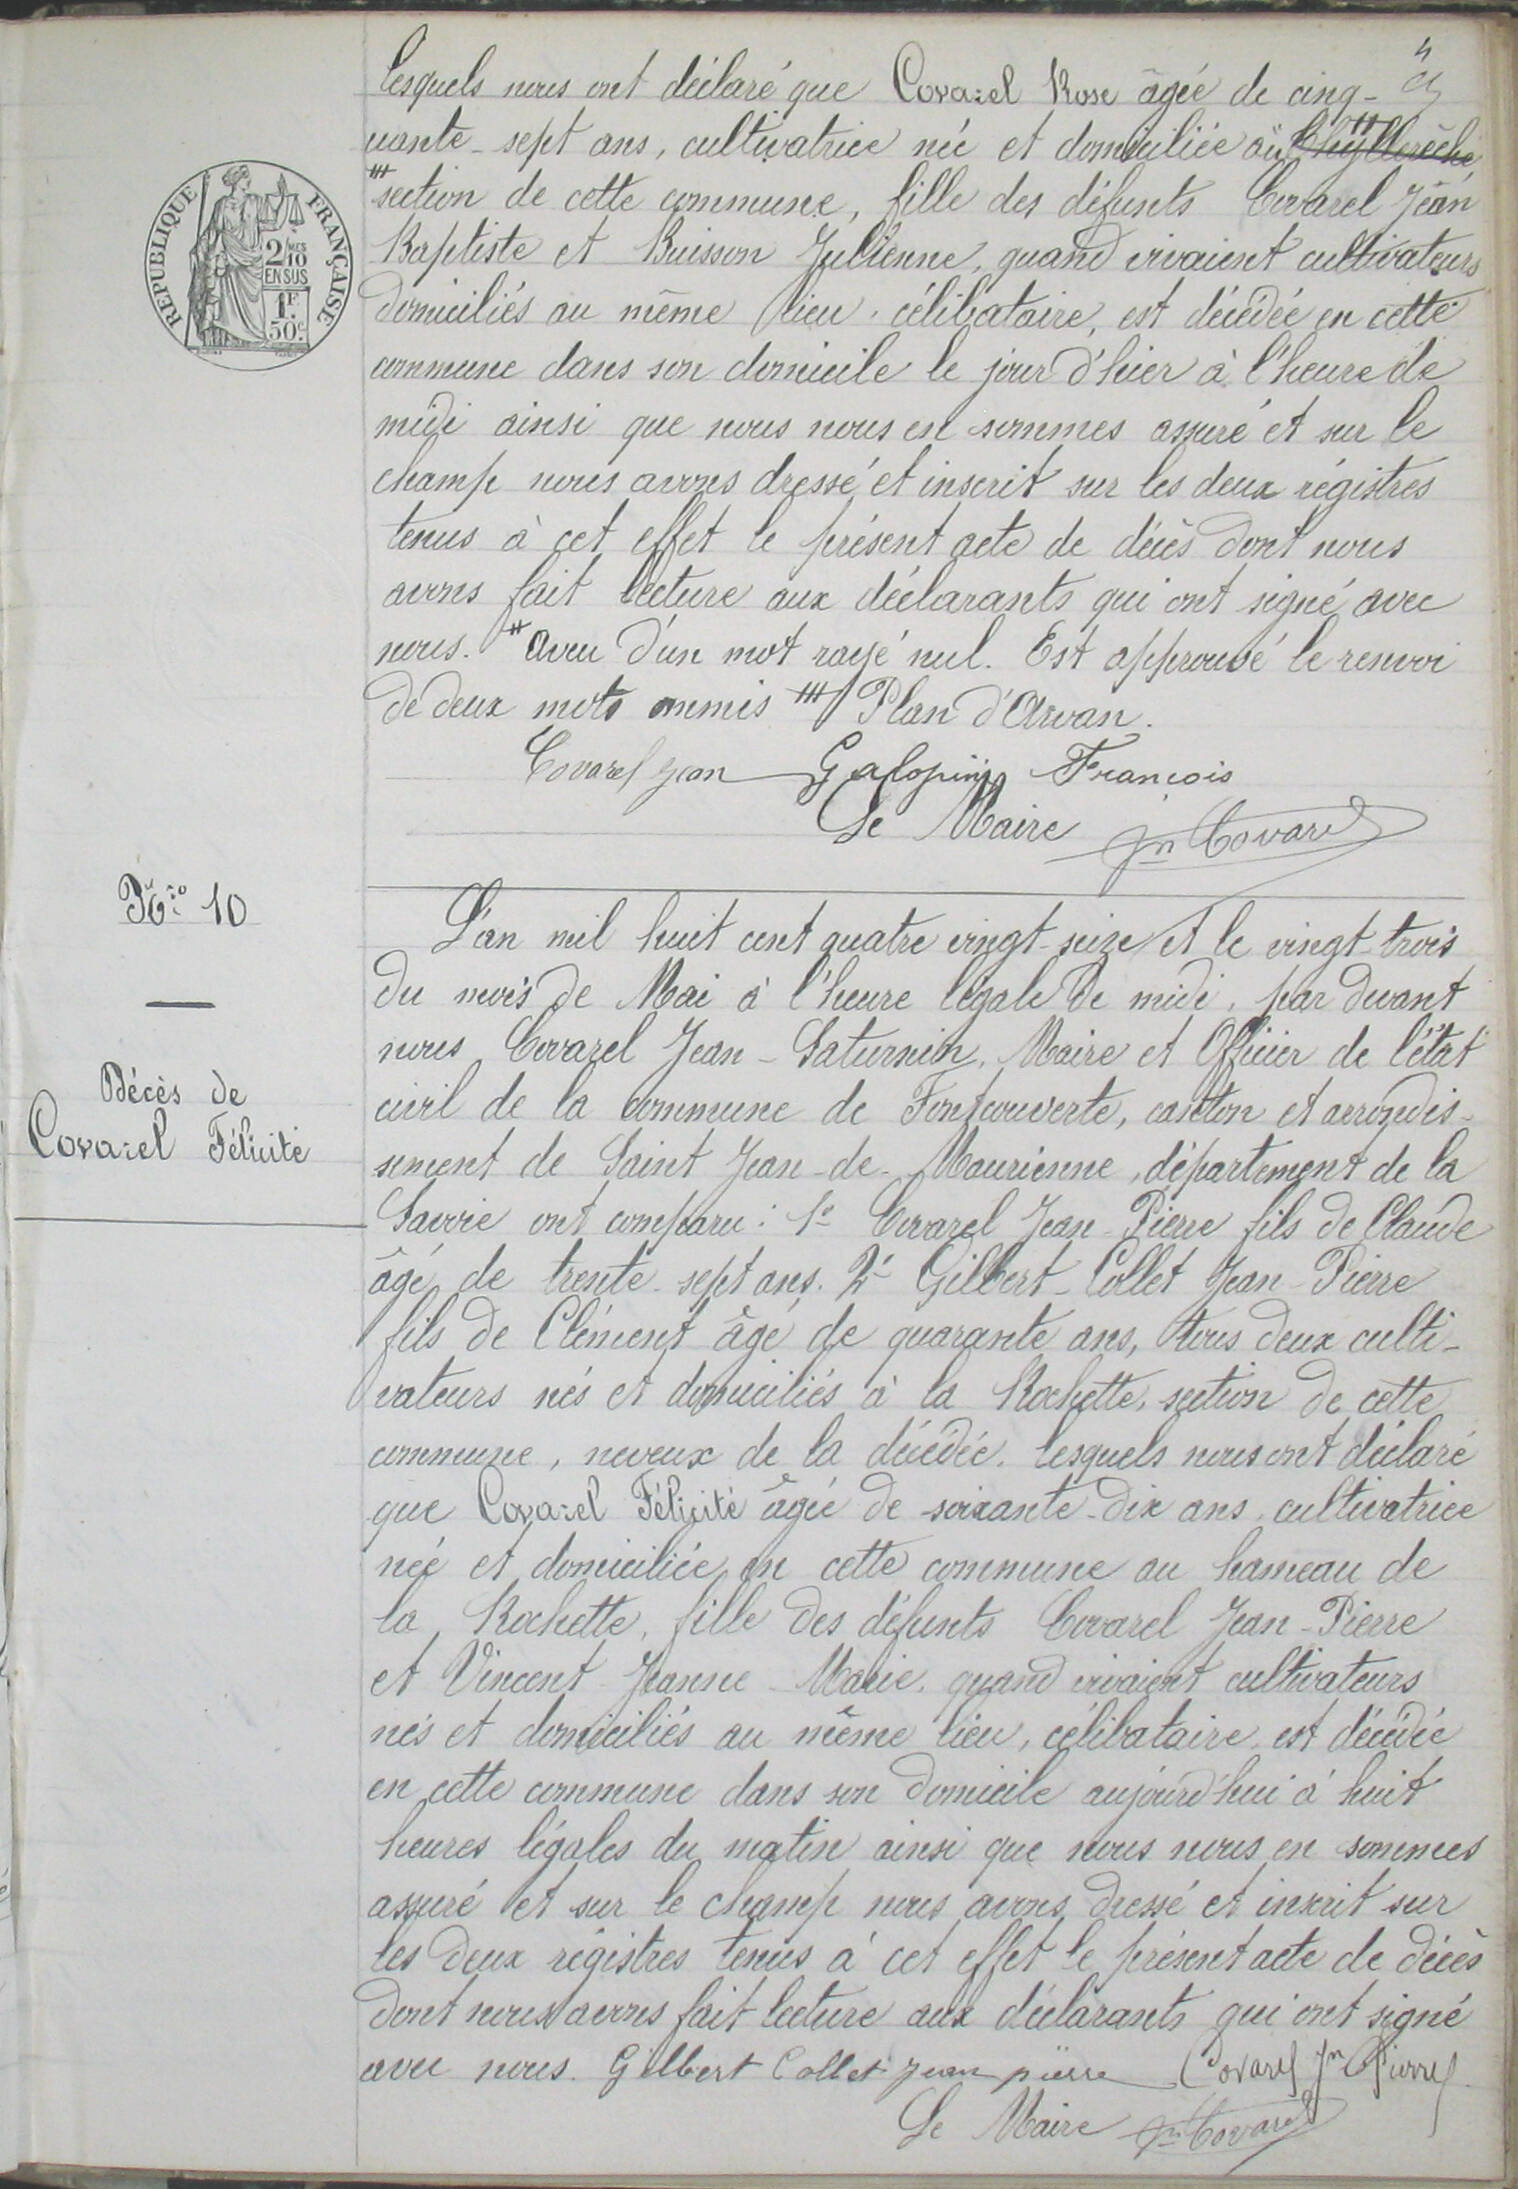 lesquels nous ont déclaré que Covarel Rose âgée de cinq-
uante-sept ans, cultivatrice née et domiciliée au
section de cette commune, fille des défunts Covarel Jean
Baptiste et Buisson Julienne, quand vivaient cultivateurs
domiciliés au même lieu, célibataire, est décédée en cette
commune dans son domicile le jour d'hier à l'heure de
midi ainsi que nous nous en sommes assuré et sur le
champ nous avons dressé et inscrit sur les deux régistres
tenus à cet effet le présent acte de décès dont nous
avons fait lecture aux déclarants qui ont signé avec
nous. # Aveu d'un mot rayé nul. Est approuvé le renvoi
de deux mots ommis Plan d'Arvan.
Covarel Jean Galopin François
Le Maire Jn Covarel
RÉPUBLIQUE FRANÇAISE
2/10 MES
EN SUS
1F.
50c.
Nro 10
Décès de
Covarel Félicité
L'an mil huit cent quatre vingt-seize et le vingt-trois
du mois de Mai à l'heure légale de midi, par devant
nous Covarel Jean-Saturnin, Maire et Officier de l'état
civil de la commune de Fontcouverte, canton et arrondis-
sement de Saint Jean-de-Maurienne, département de la
Savoie ont comparu: 1e Covarel Jean-Pierre fils de Claude
âgé de trente-sept ans. 2e Gilbert-Collet Jean-Pierre
fils de Clément âgé de quarante ans, tous deux culti-
vateurs nés et domiciliés à la Rochette, section de cette
commune, neveux de la décédée. lesquels nous ont déclaré
que Covarel Félicité âgée de soixante-dix ans, cultivatrice
née et domiciliée en cette commune au hameau de
la Rochette, fille des défunts Covarel Jean-Pierre
et Vincent Jeanne-Marie, quand vivaient cultivateurs
nés et domiciliés au même lieu, célibataire, est décédée
en cette commune dans son domicile aujourd'hui à huit
heures légales du matin ainsi que nous nous en sommes
assuré et sur le champ nous avons dressé et inscrit sur
les deux régistres tenus à cet effet le présent acte de décès
dont nous avons fait lecture aux déclarants qui ont signé
avec nous. Gilbert Collet jean pierre Covarel Jn Pierre
Le Maire Jn Covarel